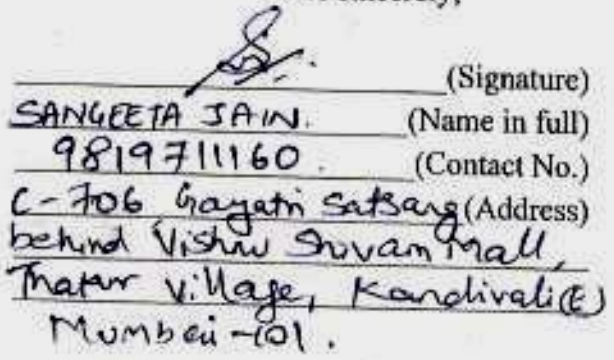 (Signature)
SANGEETA JAIN. (Name in full)
9819711160. (Contact No.)
C-706 Gayatri Satsang (Address)
behind Vishnu Shivam Mall,
Thakur Village, Kandivali(E)
Mumbai-101.